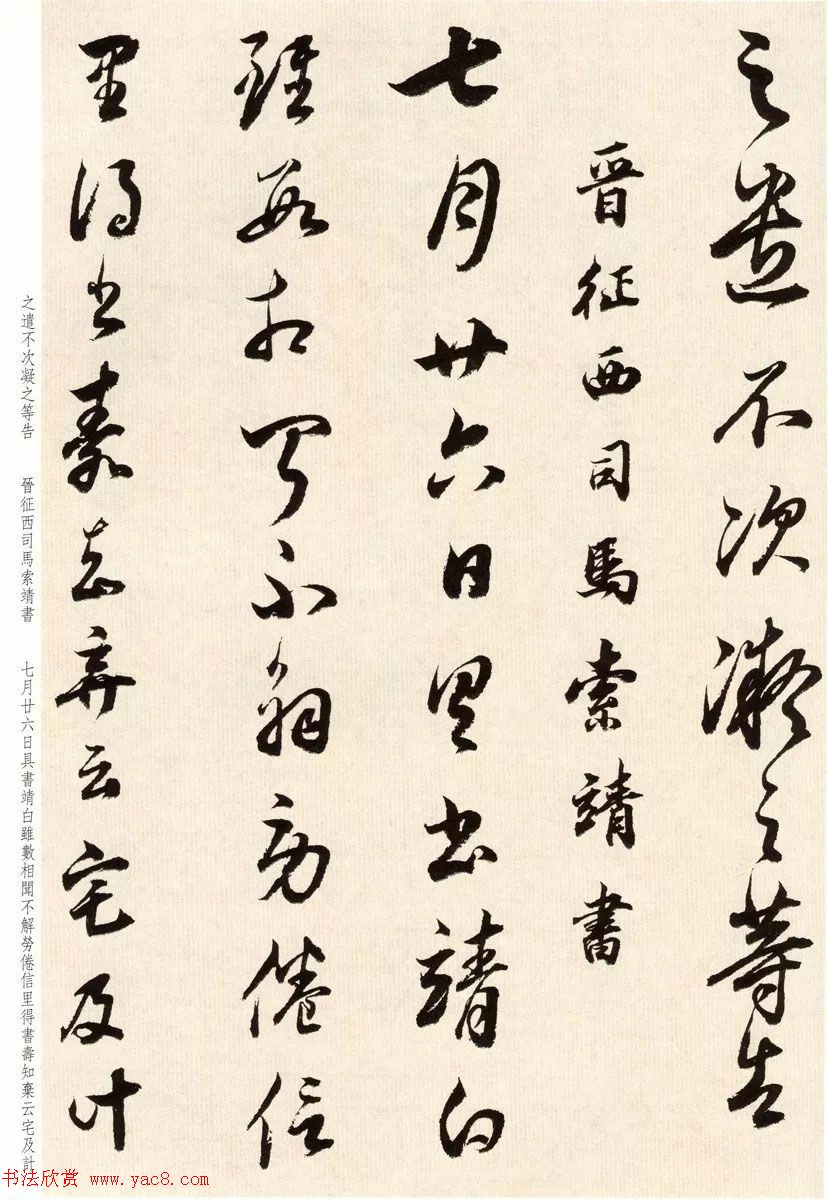 之遣不次凝之等告
晉征西司馬索靖書
七月廿六日具書靖白
雖數相聞不解勞倦信
里得書壽知棄云宅及计
之遣不次凝之等告 晉征西司馬索靖書 七月廿六日具書靖白雖數相聞不解勞倦信里得書壽知棄云宅及計
书法欣赏 www.yac8.com